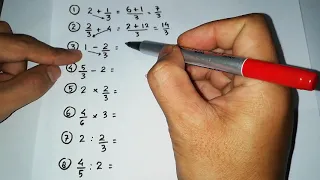 ① 2 + 1/3 = 6+1/3 = 7/3
② 2/3 + 4 = 2+12/3 = 14/3
③ 1 - 2/3 =
④ 5/3 - 2 =
⑤ 2 × 2/3 =
⑥ 4/6 × 3 =
⑦ 2 : 2/3 =
⑧ 4/5 : 2 =